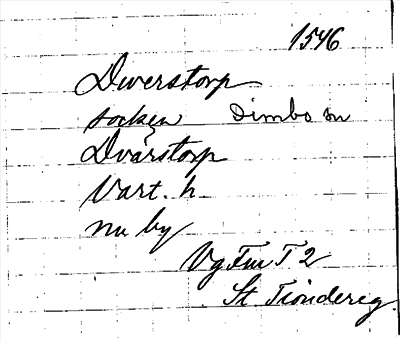 1546
Dwerstorp
socken Dimbo sn
Dvärstorp
Vart. h
nu by
Vg Fm T 2
St. Tiondereg.